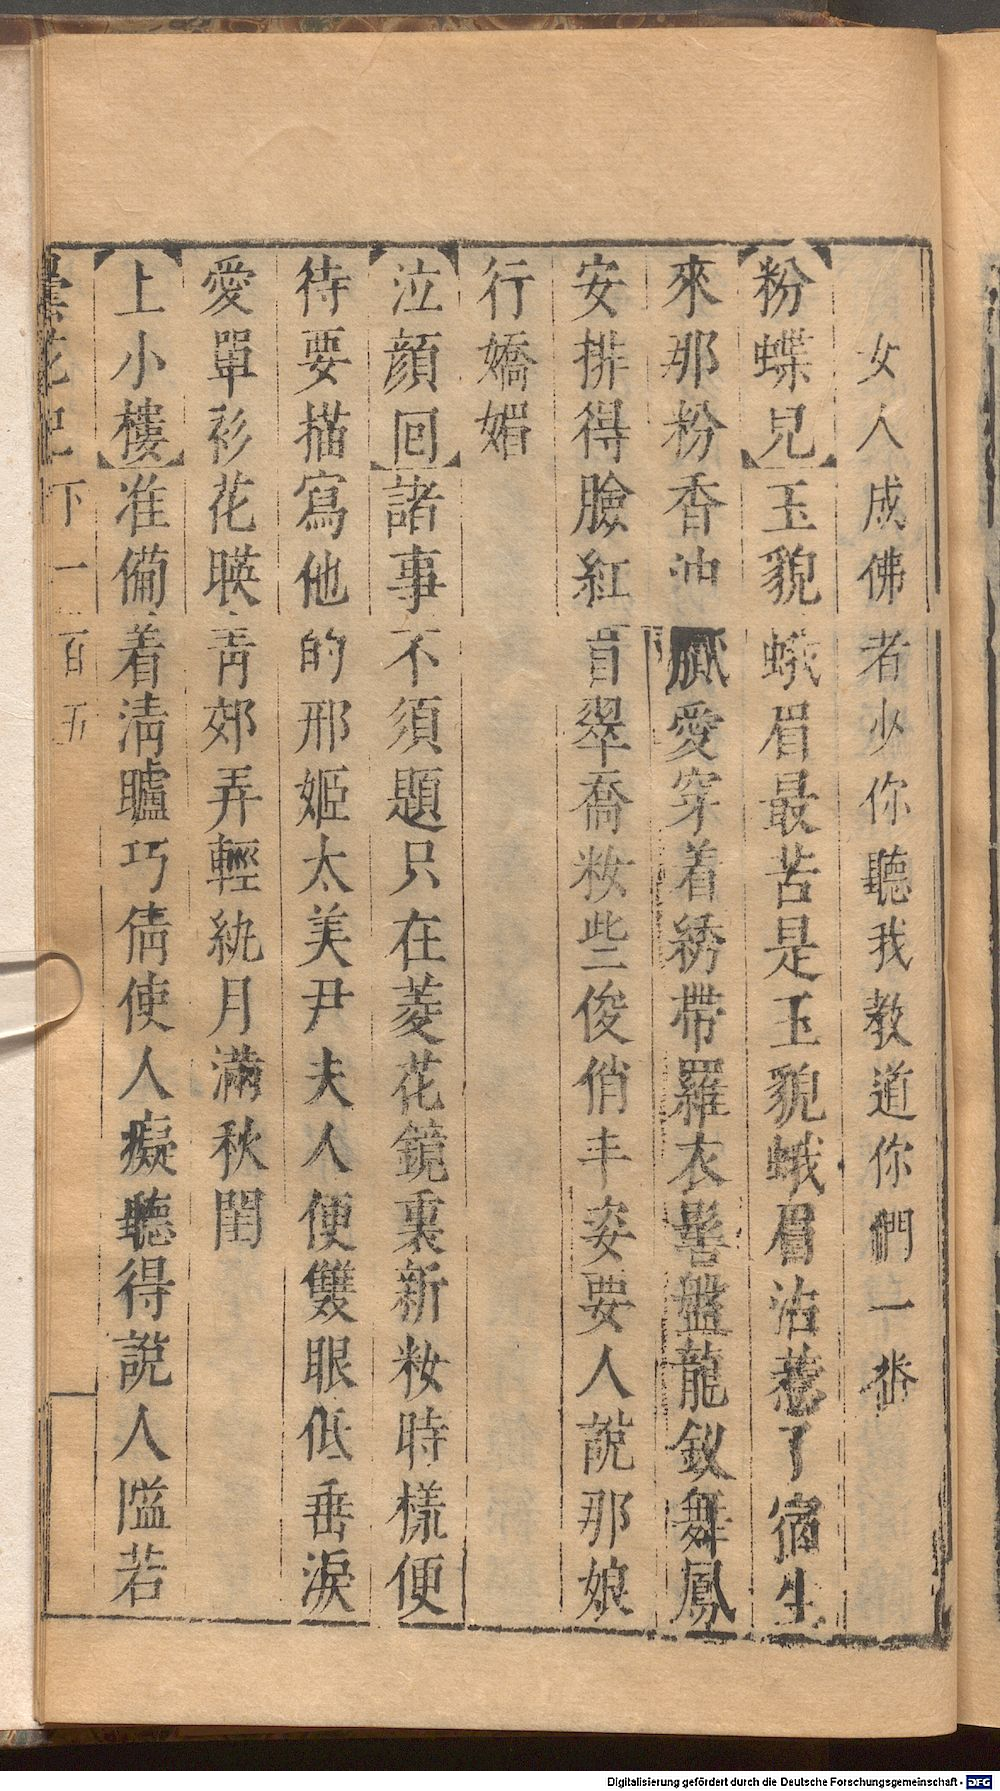 女人成佛者少你聽我教道你們一番
【粉蝶兒】玉貌蛾眉最苦是玉貌蛾眉沾惹了宿生
來那粉香油膩愛穿着綉帶羅衣髻盤龍釵舞鳳
安排得臉紅眉翠喬妝些俊俏丰姿要人說那娘
行嬌媚
【泣顔回】諸事不須題只在菱花鏡裏新妝時樣便
待要描寫他的邢姬太美尹夫人便雙眼低垂淚
愛單衫花暎青郊弄輕紈月滿秋閨
【上小樓】准備着清矑巧倩使人癡聽得說人隘若
曇花記 下 一百五
Digitalisierung gefördert durch die Deutsche Forschungsgemeinschaft - DFG